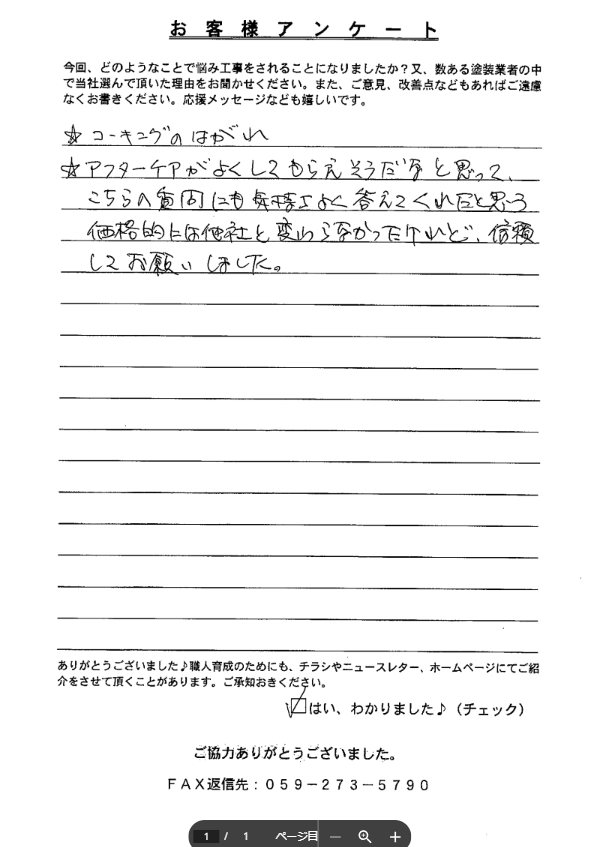 お客様アンケート
今回、どのようなことで悩み工事をされることになりましたか？又、数ある塗装業者の中
で当社選んで頂いた理由をお聞かせください。また、ご意見、改善点などもあればご遠慮
なくお書きください。応援メッセージなども嬉しいです。
☆ コーキングのはがれ
☆ アフターケアがよくしてもらえそうだなと思って、
こちらの質問にも気持よく答えてくれたと思う
価格的には他社と変わらなかったけれど、信頼
してお願いしました。
ありがとうございました♪職人育成のためにも、チラシやニュースレター、ホームページにてご紹
介をさせて頂くことがあります。ご承知おきください。
☑はい、わかりました♪（チェック）
ご協力ありがとうございました。
ＦＡＸ返信先：０５９－２７３－５７９０
1 / 1 ページ目 － ＋